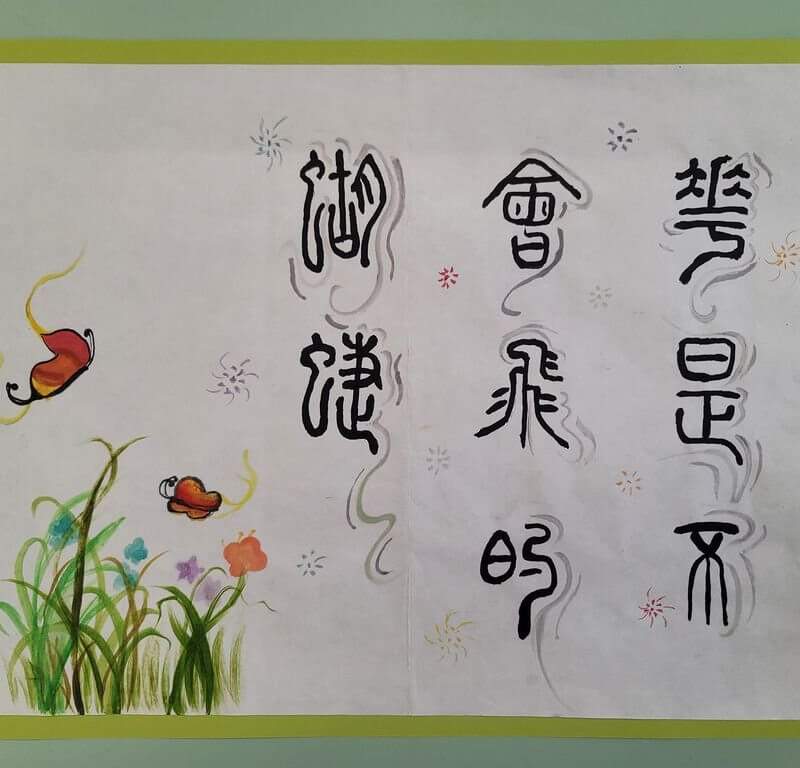 花是不
會飛的
蝴蝶